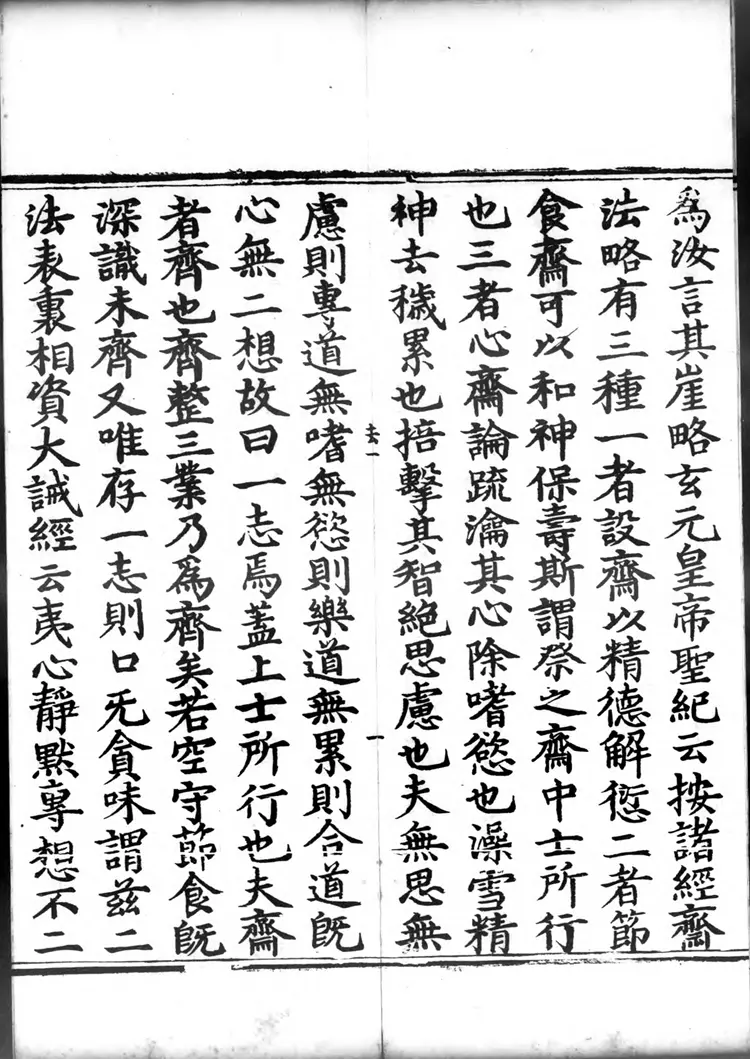 為汝言其崖略玄元皇帝聖紀云按諸經齋
法略有三種一者設齋以精德解愆二者節
食齋可以和神保壽斯謂祭之齋中士所行
也三者心齋論疏瀹其心除嗜慾也澡雪精
神去穢累也掊擊其智絕思慮也夫無思無
去一
一
慮則專道無嗜無慾則樂道無累則合道既
心無二想故曰一志焉蓋上士所行也夫齋
者齊也齊整三業乃為齊矣若空守節食既
深識未齊又唯存一志則口旡貪味謂茲二
法表裏相資大誡經云夷心靜默專想不二